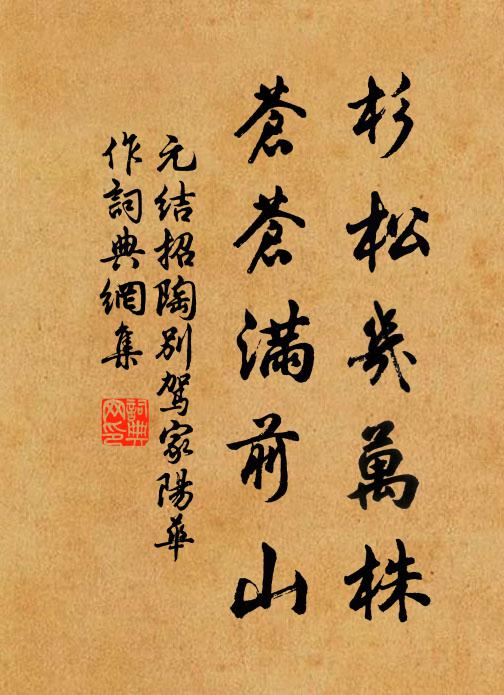 杉松幾萬株
蒼蒼滿前山
元結招陶別駕家陽華
作詞典網集
詞典
网印